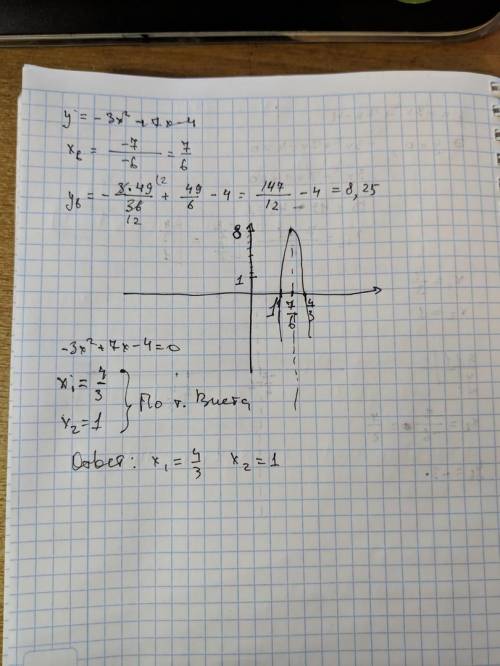 y = -3x² + 7x - 4
xв = -7/-6 = 7/6
yв = - 3·49/36 12 + 49/6 - 4 = 147/12 - 4 = 8,25
8
1
1 7/6 4/3
-3x² + 7x - 4 = 0
x₁ = 4/3
x₂ = 1
По т. Виета
Ответ: x₁ = 4/3 x₂ = 1